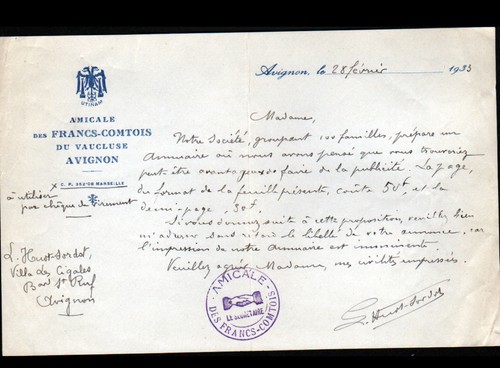 UTINAM
AMICALE
DES FRANCS-COMTOIS
DU VAUCLUSE
AVIGNON
à utiliser
par chèque de virement
L. Huot-Sordot,
Villa des Cigales
Bard St Ruf
Avignon
Avignon, le 28 février 1933
Madame,
Notre Société, groupant 100 familles, prépare un
Annuaire où nous avons pensé que vous trouveriez
peut-être avantageux de faire de la publicité. La page,
du format de la feuille présente, coûte 50f et la
demi-page, 30f.
Si vous donnez suite à cette proposition, veuillez bien
m'adresser sans retard le libellé de votre annonce, car
l'impression de notre Annuaire est imminente.
Veuillez agréer Madame, mes civilités empressées.
L. Huot-Sordot
AMICALE
LE SECRÉTAIRE
DES FRANCS-COMTOIS